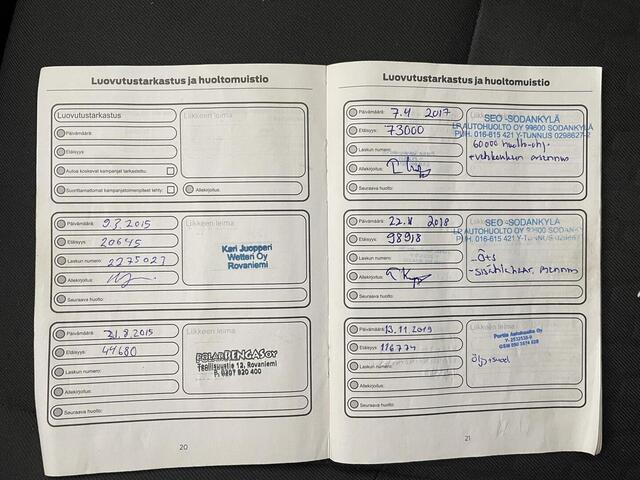 Luovutustarkastus ja huoltomuistio
Luovutustarkastus
Liikkeen leima
Päivämäärä:
Etäisyys
Autoa koskevat kampanjat tarkastettu:
Suorittamattomat kampanjatoimenpiteet tehty:
Allekirjoitus:
Päivämäärä: 9.3.2015
Liikkeen leima
Etäisyys: 20645
Kari Juopperi
Wetteri Oy
Rovaniemi
Laskun numero: 2275027
Allekirjoitus:
Seuraava huolto:
Päivämäärä: 31.8.2015
Liikkeen leima
Etäisyys: 44680
POLAR RENGAS OY
Teollisuustie 12, Rovaniemi
P. 0207 920 400
Laskun numero:
Allekirjoitus:
Seuraava huolto:
20
Luovutustarkastus ja huoltomuistio
Päivämäärä: 7.4 2017
SEO -SODANKYLÄ
LP AUTOHUOLTO OY 99600 SODANKYLÄ
PUH. 016-615 421 Y-TUNNUS 0298627-2
Etäisyys: 73000
60000 huolto-ohj.
Laskun numero:
Allekirjoitus:
Seuraava huolto:
Päivämäärä: 22.8 2018
Liikkeen leima
SEO -SODANKYLÄ
LP AUTOHUOLTO OY 99600 SODANKYLÄ
PUH. 016-615 421 Y-TUNNUS
Etäisyys: 98918
Ö+s
Laskun numero:
Allekirjoitus:
Seuraava huolto:
Päivämäärä: 13.11.2019
Liikkeen leima
Etäisyys: 116774
Laskun numero:
Allekirjoitus:
Seuraava huolto:
21